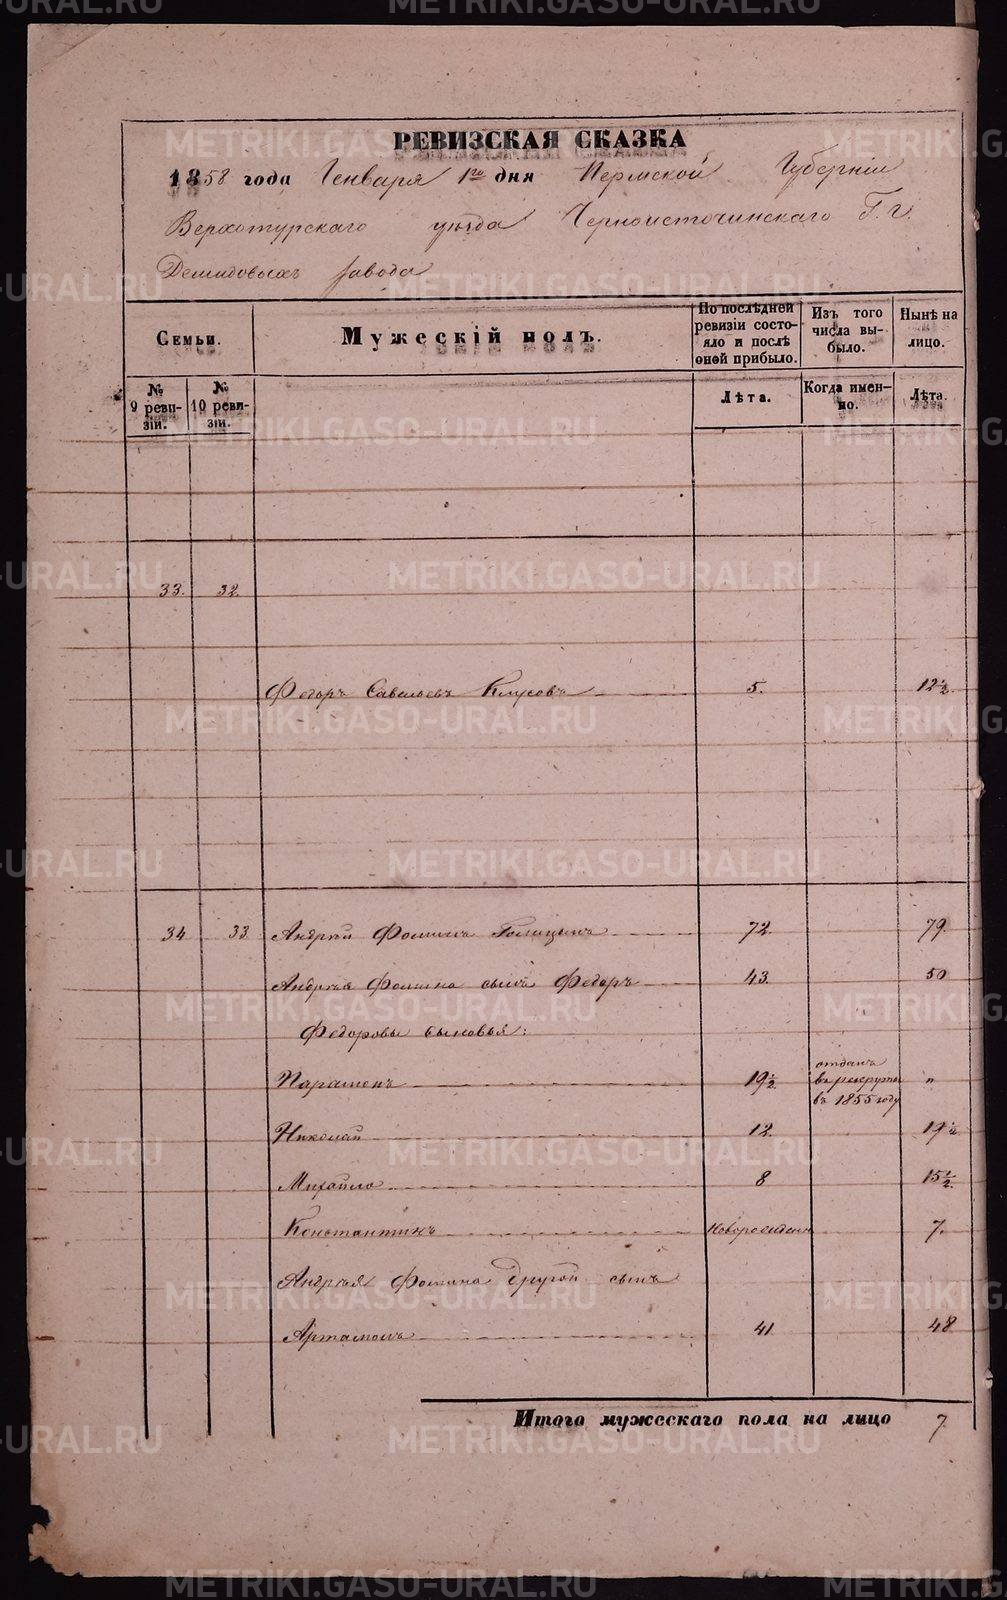 РЕВИЗСКАЯ СКАЗКА
1858 года Генваря 1го дня Пермской Губерніи
Верхотурскаго уѣзда Черноисточинскаго Г. г.
Демидовыхъ завода
Семьи.
Мужескій полъ.
По послѣдней ревизіи состояло и послѣ оней прибыло.
Изъ того числа выбыло.
Нынѣ на лицо.
№ 9 ревизіи.
№ 10 ревизіи.
Лѣта.
Когда именно.
Лѣта.
33. 32.
Федоръ Савельевъ 5. 12½.
34 33 Андрей Фоминъ Голицынъ 72. 79.
Андрея Фомина сынъ Федоръ 43. 50
Федоровы сыновья:
Парамонъ 19½. отданъ въ рекруты въ 1855 году "
Николай 12. 19½
Михайло 8 15½.
Константинъ новорожденъ 7.
Андрея Фомина другой сынъ
Артамонъ 41. 48
Итого мужескаго пола на лицо 7.
METRIKI.GASO-URAL.RU